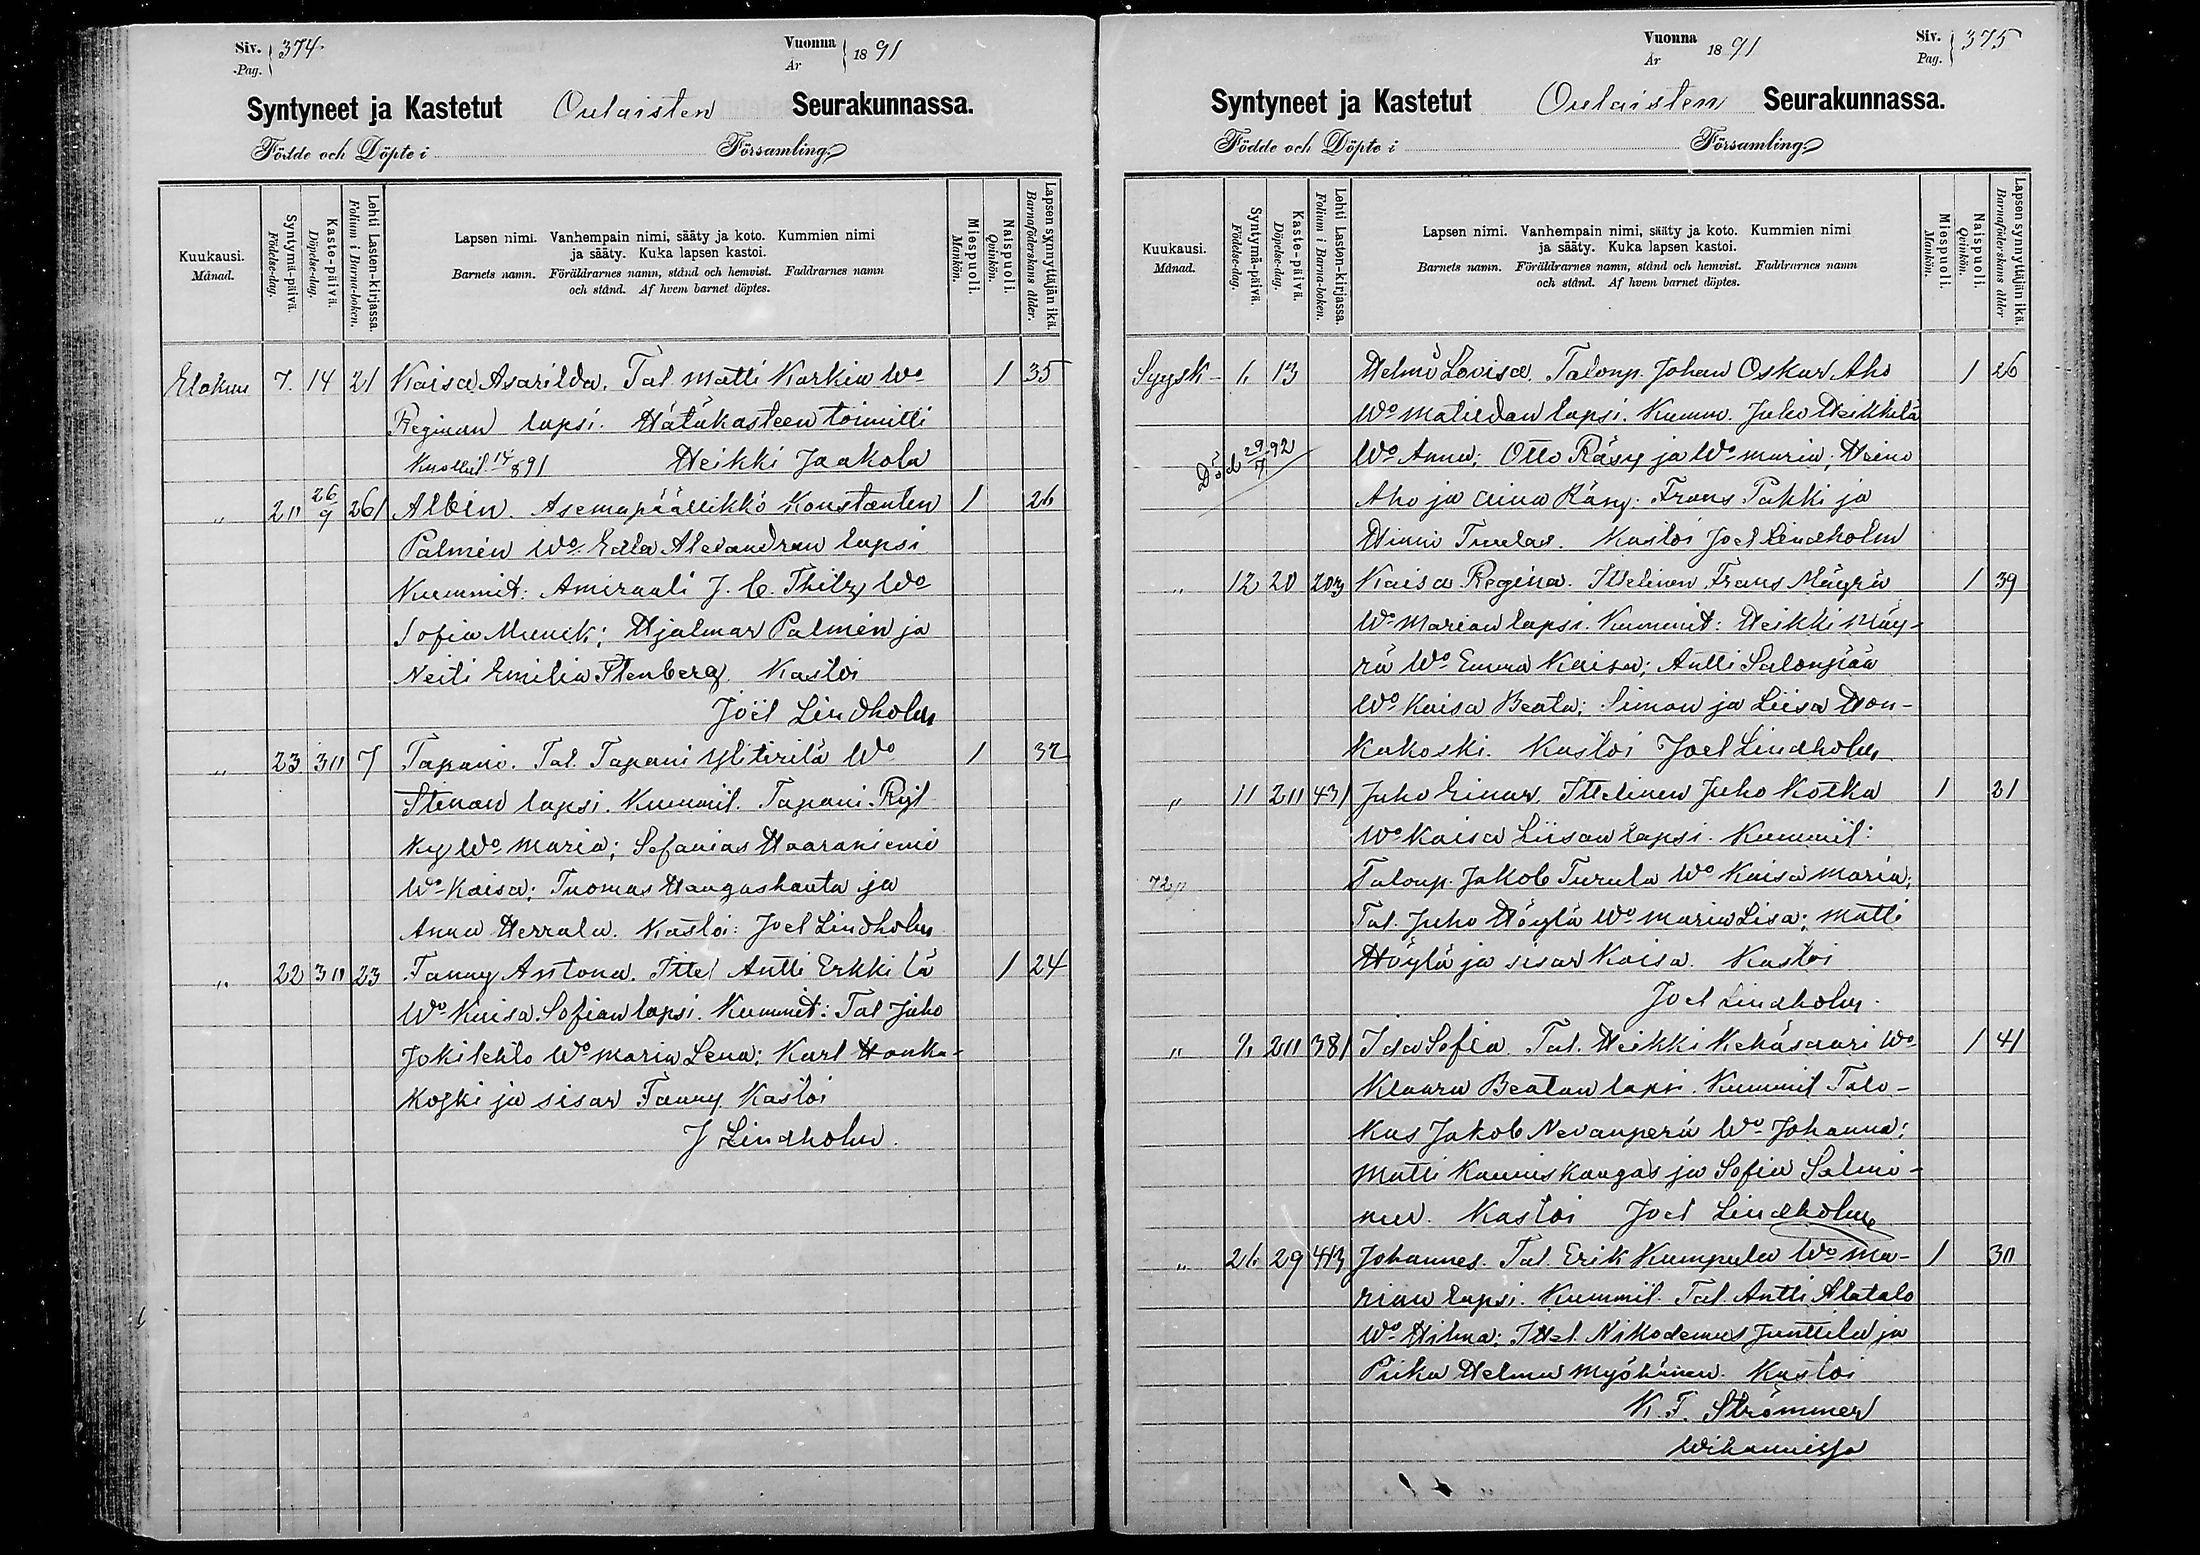 Siv. 374 Vuonna 1891
Pag. År
Syntyneet ja Kastetut Oulaisten Seurakunnassa.
Födde och Döpte i Församling
Kuukausi.
Månad.
Syntymä-päivä.
Födelse-dag.
Kaste-päivä.
Döpelse-dag.
Lehti Lasten-kirjassa.
Folium i Barna-boken.
Lapsen nimi. Vanhempain nimi, sääty ja koto. Kummien nimi
ja sääty. Kuka lapsen kastoi.
Barnets namn. Föräldrarnes namn, stånd och hemvist. Faddrarnes namn
och stånd. Af hvem barnet döptes.
Miespuoli.
Mankön.
Naispuoli.
Qvinkön.
Lapsen synnyttäjän ikä.
Barnaföderskans ålder.
7. 14 21 Kaisa Asarilda. Tal. Matti Karkin Wo 1 35
Reginan lapsi. Hätäkasteen toimitti
Kuollut 14/8 91 Heikki Jaakola
„ 20 26/9 261 Albin. Asemapäällikkö Konstantin 1 26
Palmén Wo Edla Alexandran lapsi
Kummit: Amiraali J. C. Wo
Sofia Munck; Hjalmar Palmén ja
Neiti Emilia Stenberg. Kastoi
Joël Lindholm
„ 23 30 7 Tapani. Tal. Tapani Ylitirilä Wo 1 32
Stinan lapsi. Kummit. Tapani Ryt
ky Wo Maria; Sefanias Haaraniemi
Wo Kaisa; Tuomas Haugashanta ja
Anna Herrala. Kastoi: Joel Lindholm
„ 22 30 23 Fanny Antona. Ittel Antti Erkkilä 1 24
Wo Kaisa Sofian lapsi. Kummit: Tal Juho
Jokilehto Wo Maria Lena; Karl Honka-
koski ja sisar Fanny. Kastoi
J Lindholm.
Vuonna 1891 Siv. 375
År Pag.
Syntyneet ja Kastetut Oulaisten Seurakunnassa.
Födde och Döpte i Församling
Kuukausi.
Månad.
Syntymä-päivä.
Födelse-dag.
Kaste-päivä.
Döpelse-dag.
Lehti Lasten-kirjassa.
Folium i Barna-boken.
Lapsen nimi. Vanhempain nimi, sääty ja koto. Kummien nimi
ja sääty. Kuka lapsen kastoi.
Barnets namn. Föräldrarnes namn, stånd och hemvist. Faddrarnes namn
och stånd. Af hvem barnet döptes.
Miespuoli.
Mankön.
Naispuoli.
Qvinkön.
Lapsen synnyttäjän ikä.
Barnaföderskans ålder
Syysk- 6 13 Helmi Lovisa. Talonp. Johan Oskar Aho 1 26
Wo Matildan lapsi. Kumm. Juho Heikkilä
Död 29/7 92 Wo Anna; Otto Räsy ja Wo Maria; Heino
Aho ja Aina Räsy; Frans Pakki ja
Kastoi Joel Lindholm
„ 12 20 203 Kaisa Regina. Ittelinen Frans Mäyrä 1 39
Wo Marian lapsi. Kummit: Heikki Mäy-
rä Wo Emma Kaisa; Antti Salonpää
Wo Kaisa Beata; Simon ja Liisa Hon-
kakoski. Kastoi Joel Lindholm
„ 11 20 431 Juho Einar. Ittelinen Juho Kotka 1 21
Wo Kaisa Liisan lapsi. Kummit:
Talonp. Jakob Turula Wo Kaisa Maria;
Tal. Juho Höylä Wo Maria Lisa; Matti
Höylä ja sisar Kaisa. Kastoi
Joel Lindholm.
„ 20 381 Ida Sofia. Tal. Heikki Kehäsaari Wo 1 41
Klaara Beatan lapsi. Kummit Talo-
kas Jakob Nevanperä Wo Johanna;
Matti Kauniskangas ja Sofia Salmi-
nen. Kastoi Joel Lindholm
„ 26 29 413 Johannes. Tal. Erik Kumpula Wo Ma- 1 30
rian lapsi. Kummit. Tal. Antti Alatalo
Wo Hilma; Ittel. Nikodemus Junttila ja
Piika Helma Myöhänen. Kastoi
K. F. Strömmer
Wihannissa